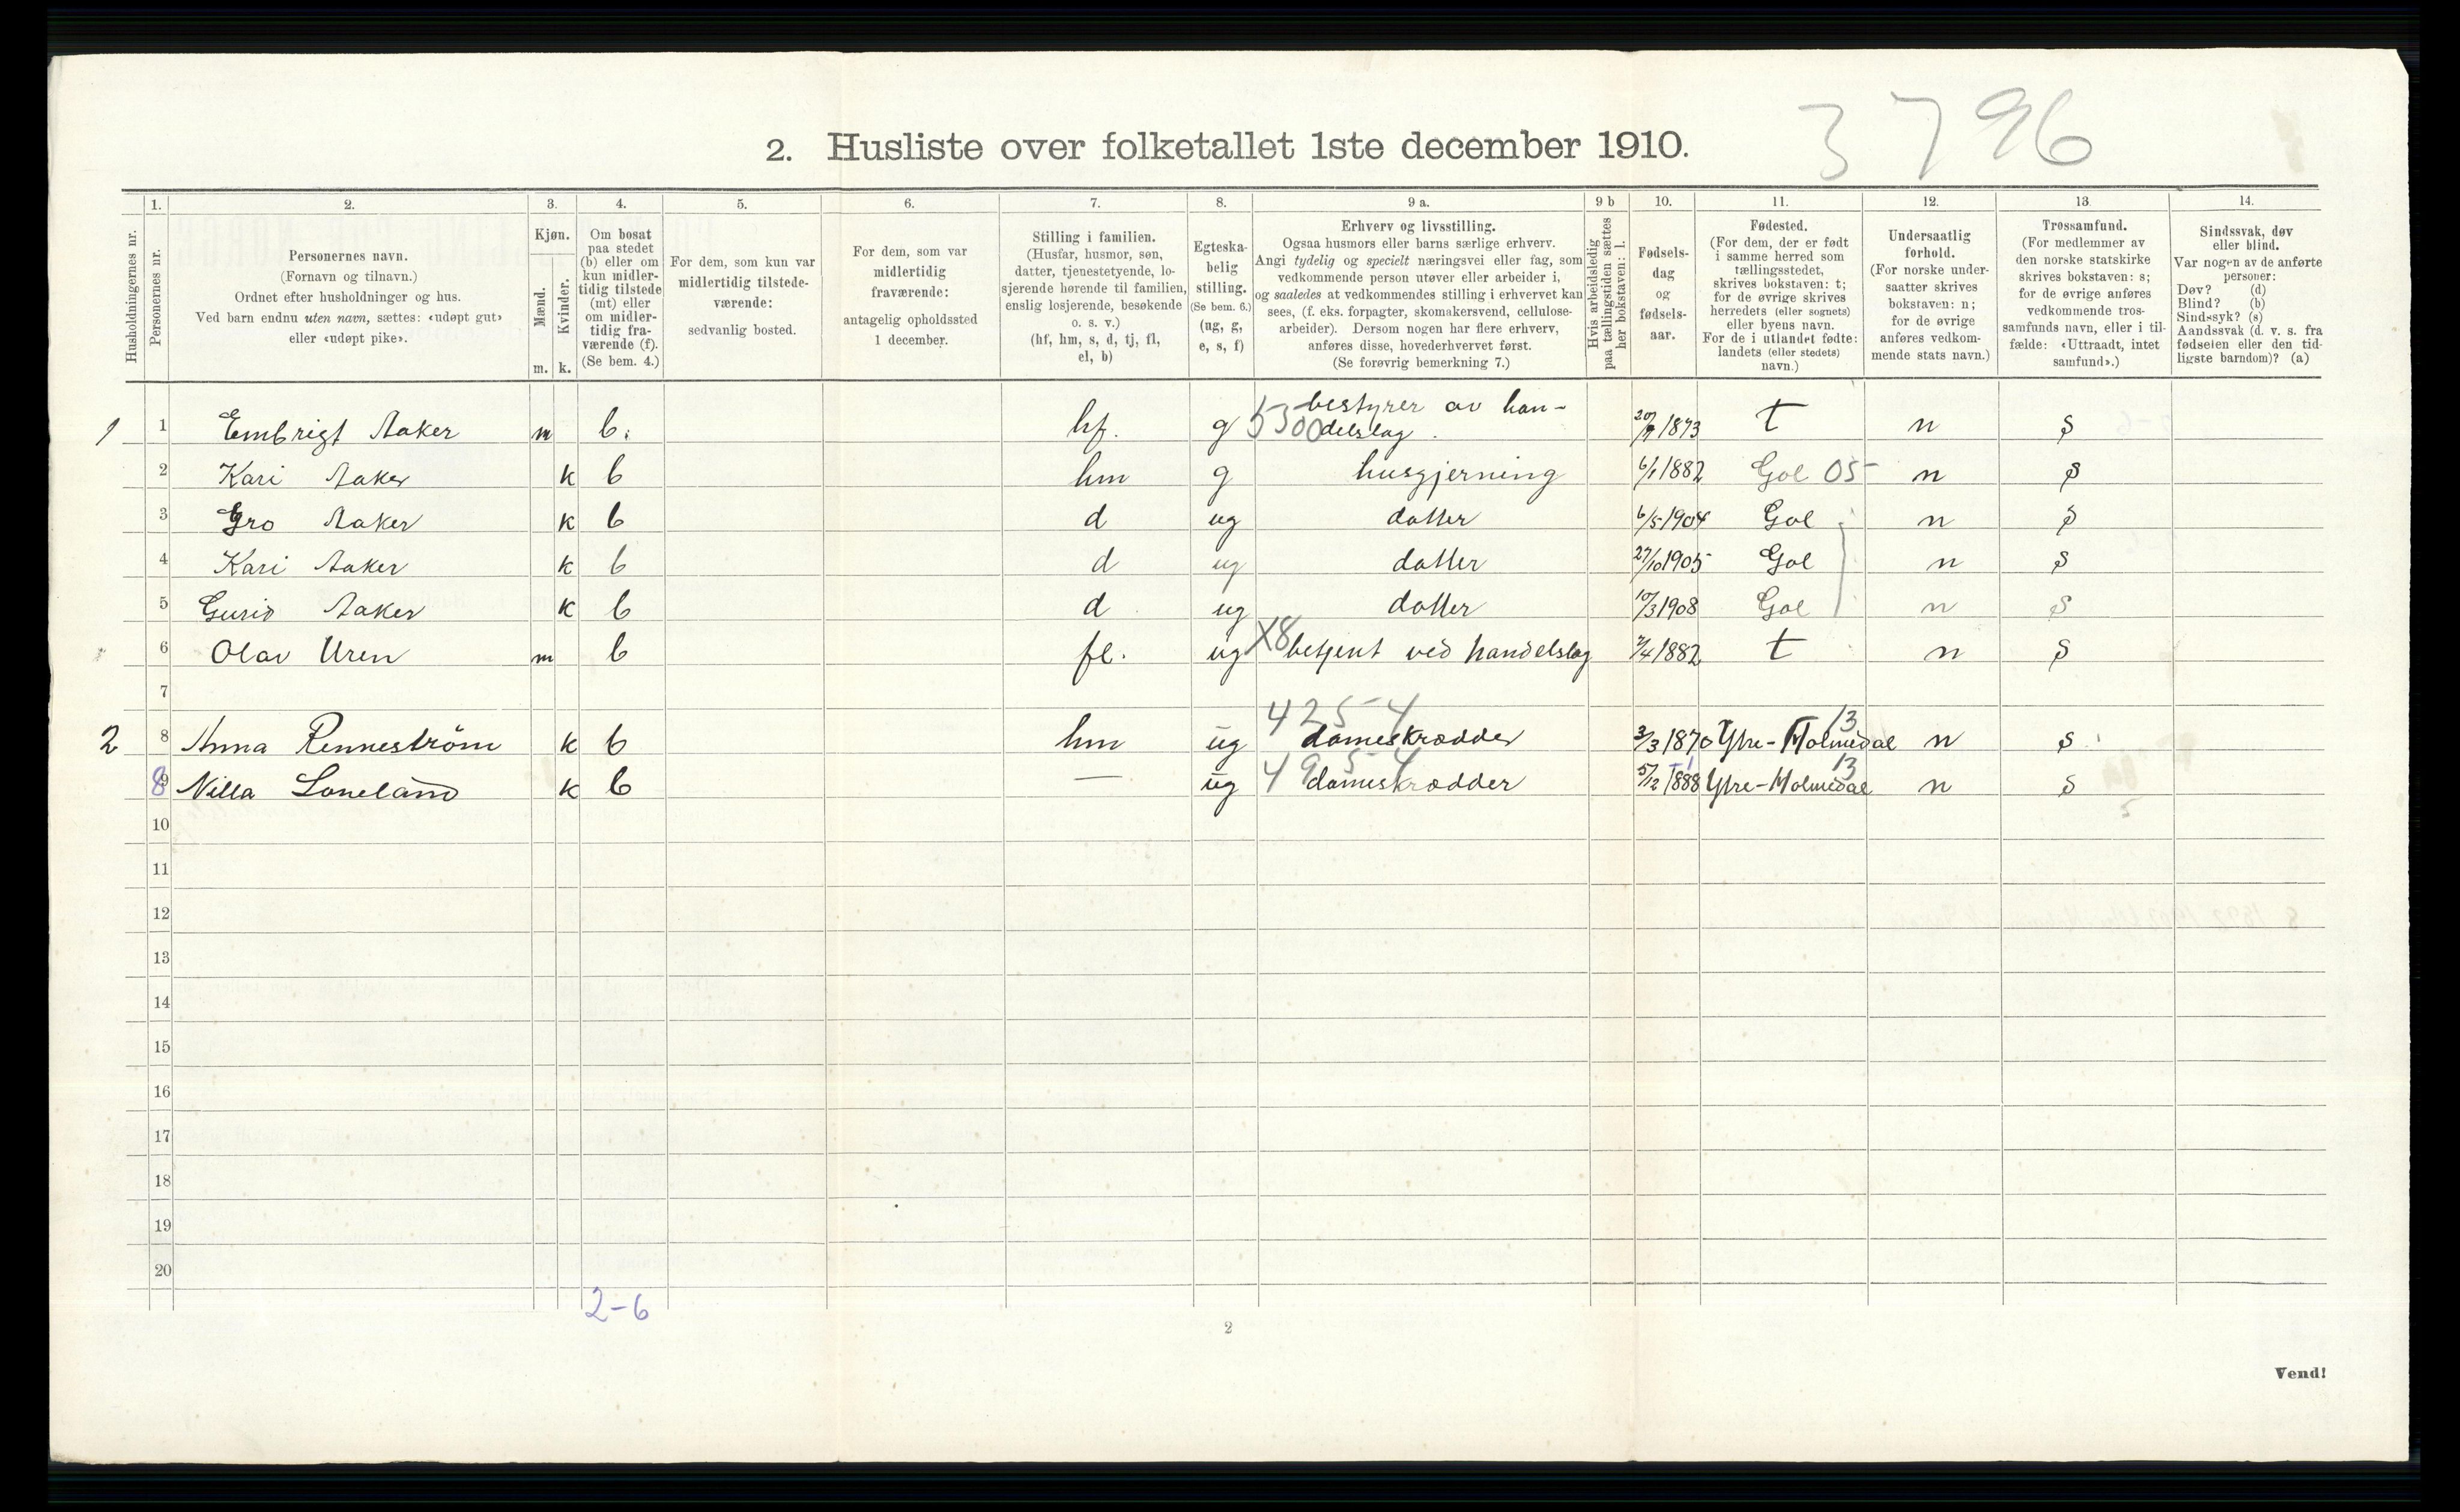 3796
2. Husliste over folketallet 1ste december 1910.
Husholdningernes nr.
1.
Personernes nr.
2.
Personernes navn.
(Fornavn og tilnavn.)
Ordnet efter husholdninger og hus.
Ved barn endnu uten navn, sættes: «udøpt gut»
eller «udøpt pike».
3.
Kjøn.
Mænd.
Kvinder.
m. k.
4.
Om bosat
paa stedet
(b) eller om
kun midler-
tidig tilstede
(mt) eller
om midler-
tidig fra-
værende (f).
(Se bem. 4.)
5.
For dem, som kun var
midlertidig tilstede-
værende:
sedvanlig bosted.
6.
For dem, som var
midlertidig
fraværende:
antagelig opholdssted
1 december.
7.
Stilling i familien.
(Husfar, husmor, søn,
datter, tjenestetyende, lo-
sjerende hørende til familien,
enslig losjerende, besøkende
o. s. v.)
(hf, hm, s, d, tj, fl,
el, b)
8.
Egteska-
belig
stilling.
(Se bem. 6.)
(ug, g,
e, s, f)
9 a.
Erhverv og livsstilling.
Ogsaa husmors eller barns særlige erhverv.
Angi tydelig og specielt næringsvei eller fag, som
vedkommende person utøver eller arbeider i,
og saaledes at vedkommendes stilling i erhvervet kan
sees, (f. eks. forpagter, skomakersvend, cellulose-
arbeider). Dersom nogen har flere erhverv,
anføres disse, hovederhvervet først.
(Se forøvrig bemerkning 7.)
9 b
Hvis arbeidsledig
paa tællingstiden sættes
her bokstaven: l.
10.
Fødsels-
dag
og
fødsels-
aar.
11.
Fødested.
(For dem, der er født
i samme herred som
tællingsstedet,
skrives bokstaven: t;
for de øvrige skrives
herredets (eller sognets)
eller byens navn.
For de i utlandet fødte:
landets (eller stedets)
navn.)
12.
Undersaatlig
forhold.
(For norske under-
saatter skrives
bokstaven: n;
for de øvrige
anføres vedkom-
mende stats navn.)
13
Trossamfund.
(For medlemmer av
den norske statskirke
skrives bokstaven: s;
for de øvrige anføres
vedkommende tros-
samfunds navn, eller i til-
fælde: «Uttraadt, intet
samfund».)
14.
Sindssvak, døv
eller blind.
Var nogen av de anførte
personer:
Døv? (d)
Blind? (b)
Sindssyk? (s)
Aandssvak (d. v. s. fra
fødselen eller den tid-
ligste barndom)? (a)
1 1 Embrigt Aaker m b. hf. g 5300 bestyrer av han-
delslag. 20/9 1873 t n s
2 Kari Aaker k b hm g husgjerning 6/1 1882 Gol 05 n s
3 Gro Aaker k b d ug datter 6/5 1904 Gol n s
4 Kari Aaker k b d ug datter 27/10 1905 Gol n s
5 Gurid Aaker k b d ug datter 10/3 1908 Gol n s
6 Olav Uren m b fl. ug X8 betjent ved handelslag 7/4 1882 t n s
7
4 2 5 4 13
2 8 Anna Renneström k b hm ug dameskrædder 3/3 1870 Ytre-Holmedal n s
8 9 Nilla Loneland k b — ug 4 9 5 4 dameskrædder 5/12 1888 Ytre-Holmedal 13 n s
10
11
12
13
14
15
16
17
18
19
20
2-6
2
Vend!